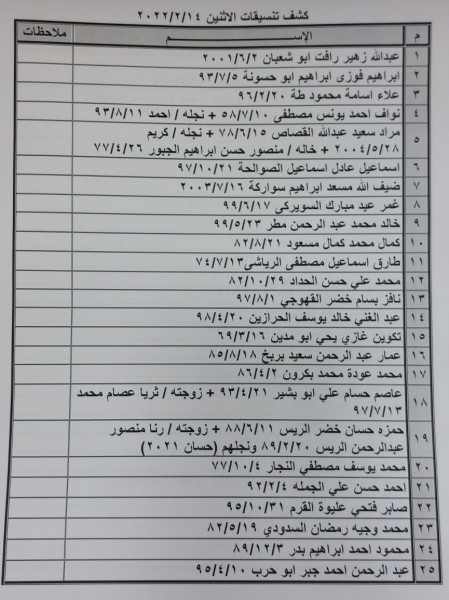 كشف تنسيقات الاثنين ٢٠٢٢/٢/١٤
م الإســـم ملاحظات
١ عبدالله زهير رافت ابو شعبان ٢٠٠١/٦/٢
٢ ابراهيم فوزى ابراهيم ابو حسونة ٩٣/٧/٥
٣ علاء اسامة محمود طة ٩٦/٢/٢٠
٤ نواف احمد يونس مصطفى ٥٨/٧/١٠ + نجله / احمد ٩٣/٨/١١
٥ مراد سعيد عبدالله القصاص ٧٨/٦/١٥ + نجله / كريم
٢٠٠٤/٥/٢٨ + خاله / منصور حسن ابراهيم الجبور ٧٧/٤/٢٦
٦ اسماعيل عادل اسماعيل الصوالحة ٩٧/١٠/٢١
٧ ضيف الله مسعد ابراهيم سواركة ٢٠٠٣/٧/١٦
٨ غمر عيد مبارك السويركى ٩٩/٦/١٧
٩ خالد محمد عبد الرحمن مطر ٩٩/٥/٢٣
١٠ كمال محمد كمال مسعود ٨٢/٨/٢١
١١ طارق اسماعيل مصطفى الرياشى ٧٤/٧/١٣
١٢ محمد علي حسن الحداد ٨٢/١٠/٢٩
١٣ نافز بسام خضر القهوجي ٩٧/٨/١
١٤ عبد الغني خالد يوسف الحرازين ٩٨/٤/٢٠
١٥ تكوين غازي يحي ابو مدين ٦٩/٣/١٦
١٦ عمار عبد الرحمن سعيد بربخ ٨٥/٨/١٨
١٧ محمد عودة محمد بكرون ٨٦/٤/٢
١٨ عاصم حسام علي ابو بشير ٩٣/٤/٢١ + زوجته / ثريا عصام محمد
٩٧/٧/١٣
١٩ حمزه حسان خضر الريس ٨٨/٦/١١ + زوجته / رنا منصور
عبدالرحمن الريس ٨٩/٢/٢٠ ونجلهم (حسان ٢٠٢١)
٢٠ محمد يوسف مصطفي النجار ٧٧/١٠/٤
٢١ احمد حسن علي الجمله ٩٢/٢/٤
٢٢ صابر فتحي عليوة القرم ٩٥/١٠/٣١
٢٣ محمد وجيه رمضان السدودي ٨٢/٥/١٩
٢٤ محمود احمد ابراهيم بدر ٨٩/١٢/٣
٢٥ عبد الرحمن احمد جبر ابو حرب ٩٥/٤/١٠